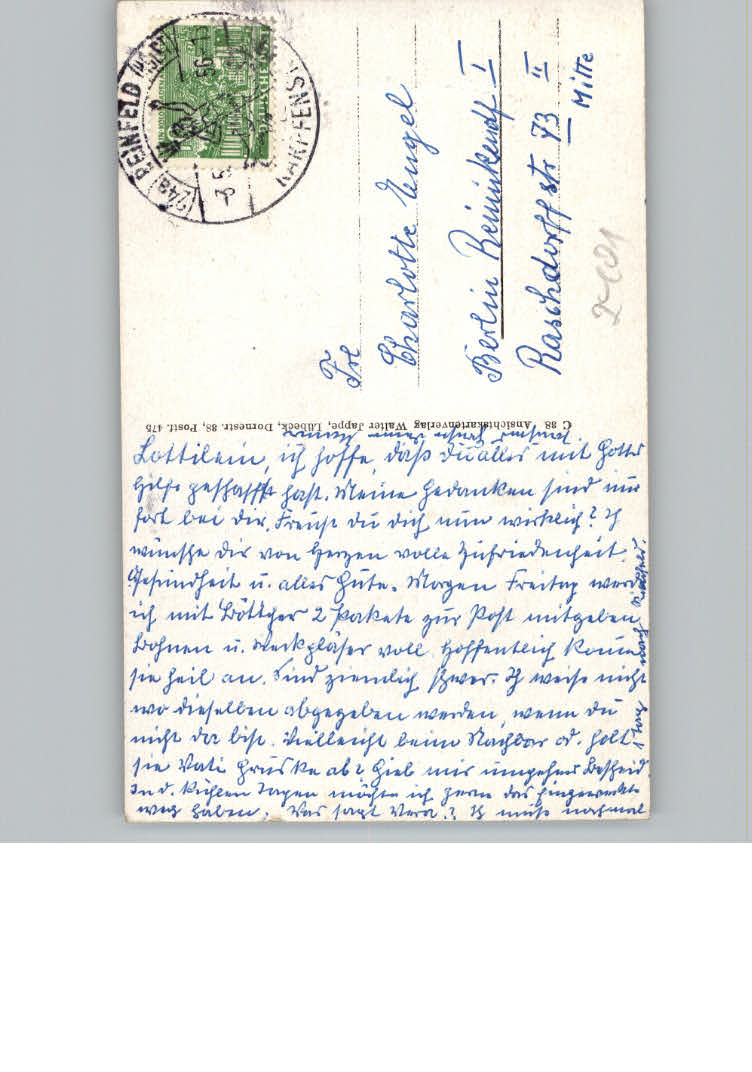 (24a) REINFELD (HOLST)
KARPFENS
-3.5.56-1
Frl
Charlotte Engel
Berlin Reinickendf I
Raschdorffstr 73 II
Mitte
C 88 Ansichtskartenverlag Walter Jappe, Lübeck, Dornestr. 88, Postf. 475
Lottilein, ich hoffe, daß du alles mit Gottes
Hilfe geschafft hast. Meine Gedanken sind nur
fort bei dir. Freust du dich nun wirklich? Ich
wünsche dir von Herzen volle Zufriedenheit
Gesundheit u. alles Gute. Morgen Freitag werde
ich mit Böttcher 2 Pakete zur Post mitgeben
Bohnen u. Weckgläser voll. Hoffentlich komme
sie heil an. Sind ziemlich schwer. Ich weiß nicht
wo dieselben abgegeben werden, wenn du
nicht da bist. Vielleicht beim Nachbar od. holt
sie Vati Gruske ab? Gieb mir umgehend Bescheid.
In d. kühlen Tagen möchte ich gern das Eingeweckte
weg haben. Was sagt Vera? Ich muß nochmal
1 Tag nach